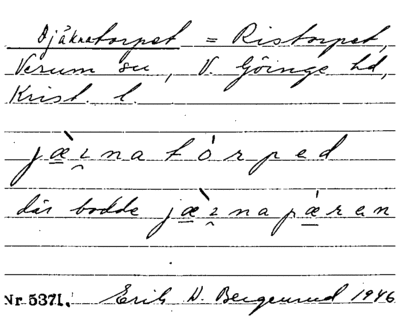 Djäknatorpet = Ristorpet,
Verum sn, V. Göinge hd,
Krist. l.
jæ̀ɪnatòrped
där bodde jæ̀ɪnapæ̀ren
Nr 5371. Erik D. Bergenrud 1946